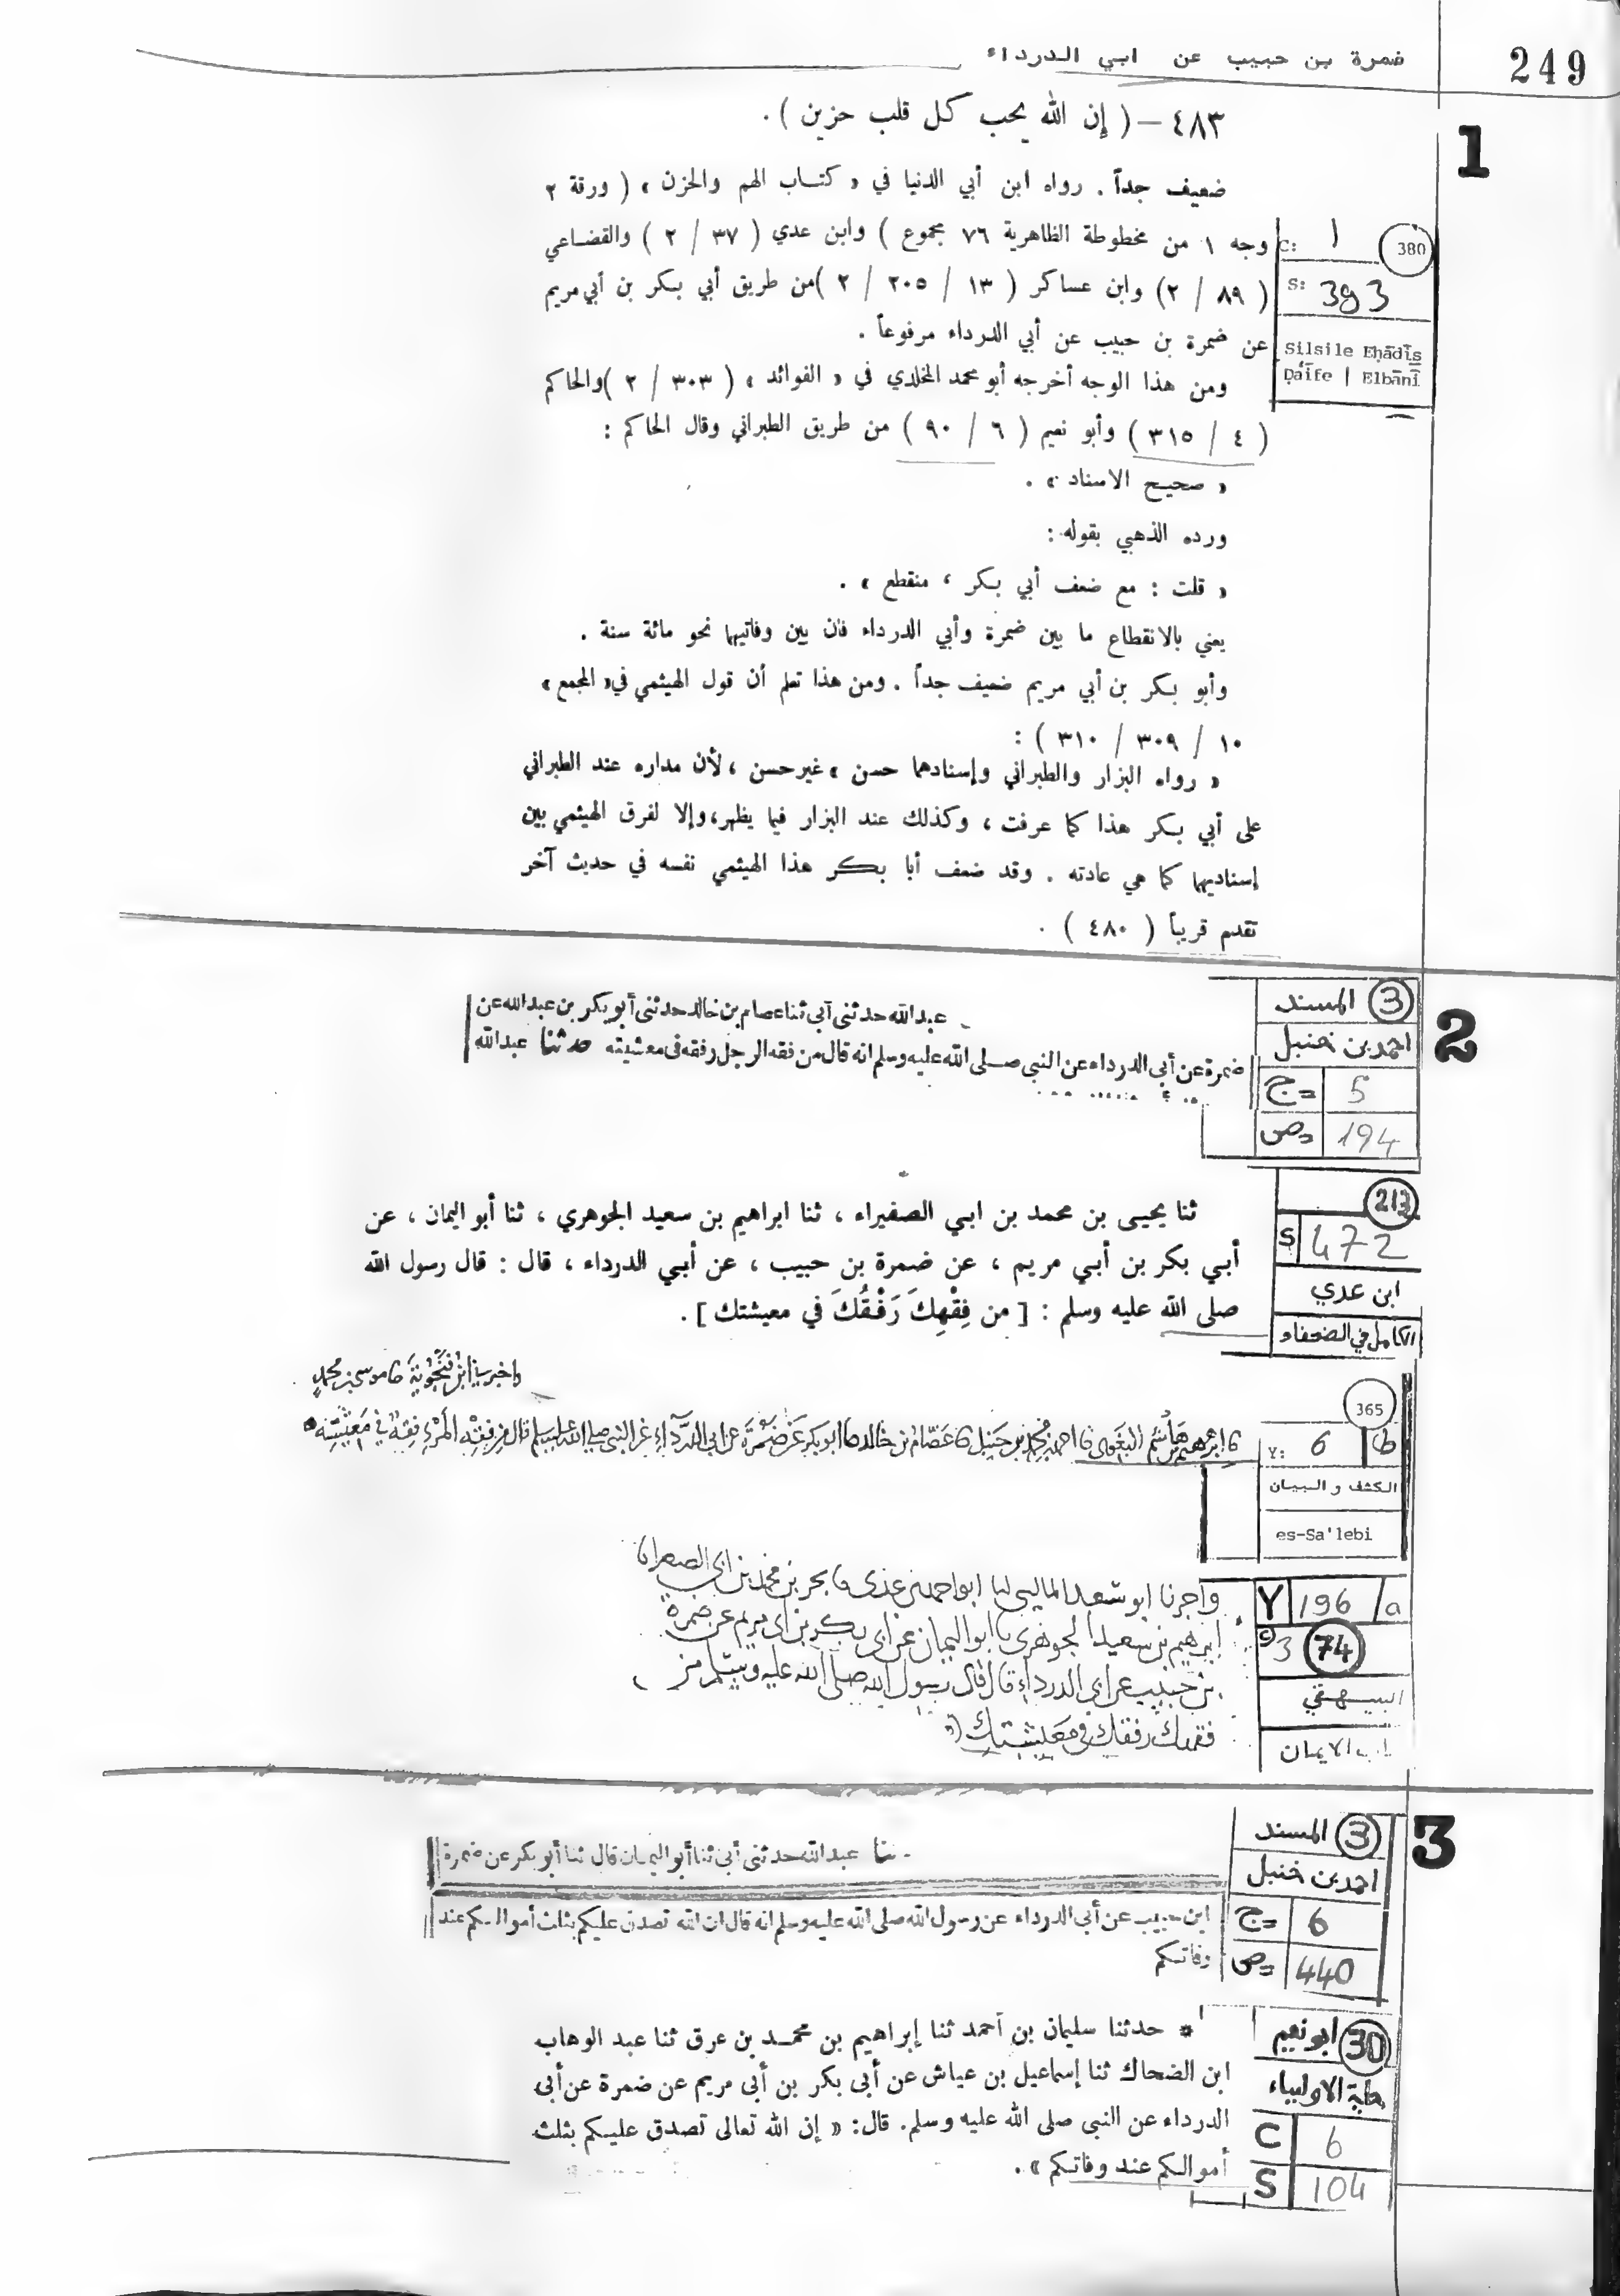 249
ضمرة بن حبيب عن ابي الدرداء
1
٤٨٣ – ( إن الله يحب كل قلب حزين ) .
ضعيف جداً . رواه ابن أبي الدنيا في « كتاب الهم والحزن » ( ورقة ٢
وجه ١ من مخطوطة الظاهرية ٧٦ مجموع ) وابن عدي ( ٣٧ / ٢ ) والقضاعي
( ٨٩ / ٢) وابن عساكر ( ١٣ / ٢٠٥ / ٢ )من طريق أبي بكر بن أبي مريم
عن ضمرة بن حبيب عن أبي الدرداء مرفوعاً .
ومن هذا الوجه أخرجه أبو محمد المخلدي في « الفوائد » ( ٣٠٣ / ٢ )والحاكم
( ٤ / ٣١٥ ) وأبو نعيم ( ٦ / ٩٠ ) من طريق الطبراني وقال الحاكم :
« صحيح الاسناد » .
ورده الذهبي بقوله :
« قلت : مع ضعف أبي بكر ، منقطع » .
يعني بالانقطاع ما بين ضمرة وأبي الدرداء فان بين وفاتيهما نحو مائة سنة .
وأبو بكر بن أبي مريم ضعيف جداً . ومن هذا تعلم أن قول الهيثمي في« المجمع »
١٠ / ٣٠٩ / ٣١٠ ) :
« رواه البزار والطبراني وإسنادهما حسن » غير حسن ، لأن مداره عند الطبراني
على أبي بكر هذا كما عرفت ، وكذلك عند البزار فيما يظهر، وإلا لفرق الهيثمي بين
إسناديهما كما هي عادته . وقد ضعف أبا بكر هذا الهيثمي نفسه في حديث آخر
تقدم قريباً ( ٤٨٠ ) .
C: ١ 380
S: 393
Silsile Eḥādīs̱
Ḍaīfe | Elbānī
2
3 المسند
احمد بن حنبل
ج= 5
ص= 194
عبد الله حدثنى أبى ثنا عصام بن خالد حدثنى أبو بكر بن عبد الله عن
ضمرة عن أبى الدرداء عن النبى صلى الله عليه وسلم انه قال من فقه الرجل رفقه فى معيشته حدثنا عبد الله
213
S 472
ابن عدي
الكامل في الضعفاء
ثنا يحيى بن محمد بن ابي الصفيراء ، ثنا ابراهيم بن سعيد الجوهري ، ثنا أبو اليمان ، عن
أبي بكر بن أبي مريم ، عن ضمرة بن حبيب ، عن أبي الدرداء ، قال : قال رسول الله
صلى الله عليه وسلم : [ من فِقْهِكَ رَفْقُكَ في معيشتك ] .
365
Y: 6 b
الكشف و البيان
es-Sa'lebi
واخبرني ابن فنجويه نا موسى بن محمد
نا ابرهيم بن هاشم البغوي نا احمد بن محمد بن حنبل نا عصام بن خالد نا ابو بكر عن ضمرة عن ابي الدرداء عن النبي صلى الله عليه وسلم قال من فقه المرء رفقه في معيشته
Y 196 /a
3 74
البيهقي
الايمان
واخبرنا ابو سعد الماليني انا ابو احمد بن عدي نا يحيى بن محمد بن ابي الصفيرا نا
ابرهيم بن سعيد الجوهري نا ابو اليمان عن ابي بكر بن ابي مريم عن ضمرة
بن حبيب عن ابي الدرداء قال قال رسول الله صلى الله عليه وسلم من
فقهك رفقك في معيشتك
3
3 المسند
احمد بن حنبل
ج= 6
ص= 440
ثنا عبد الله حدثنى أبى ثنا أبو اليمان قال ثنا أبو بكر عن ضمرة
ابن حبيب عن أبى الدرداء عن رسول الله صلى الله عليه وسلم انه قال ان الله تصدق عليكم بثلث أموالكم عند
وفاتكم
30 ابو نعيم
حلية الاولياء
C 6
S 104
* حدثنا سليمان بن أحمد ثنا إبراهيم بن محمد بن عرق ثنا عبد الوهاب
ابن الضحاك ثنا إسماعيل بن عياش عن أبى بكر بن أبى مريم عن ضمرة عن أبى
الدرداء عن النبى صلى الله عليه وسلم. قال: « إن الله تعالى تصدق عليكم بثلث
أموالكم عند وفاتكم » .